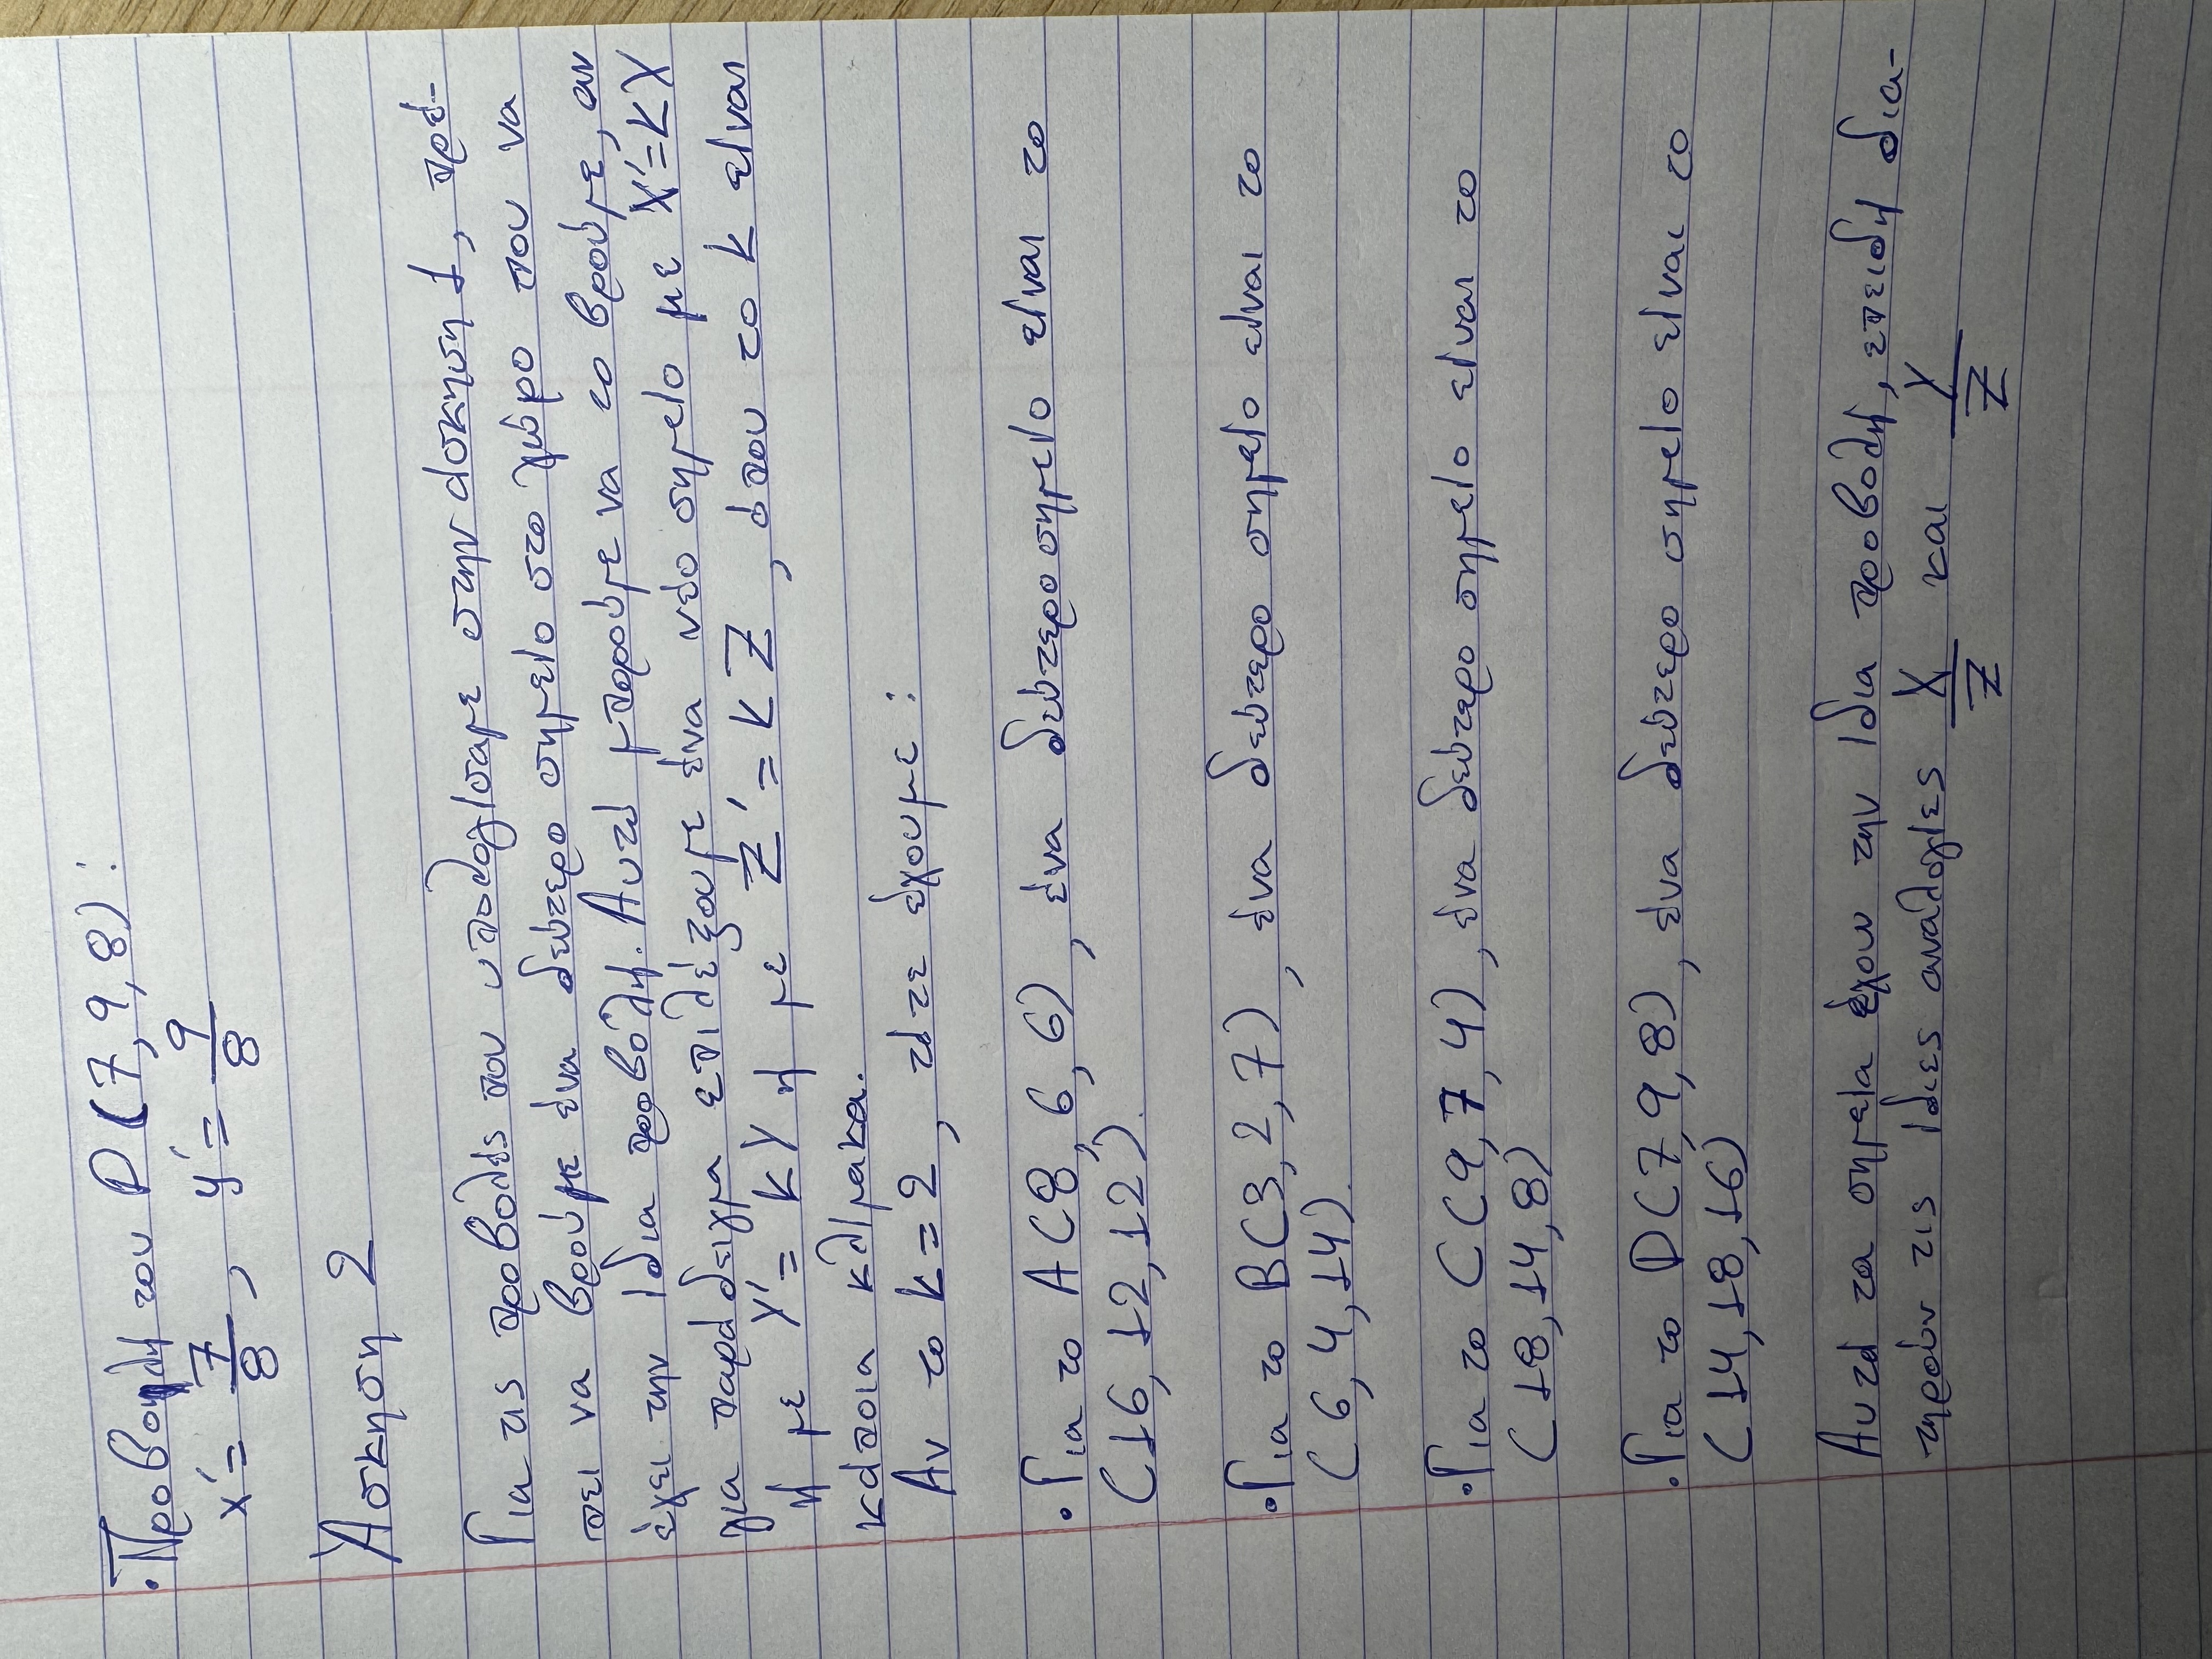 • Προβολή του D(7,9,8):
x' = 7/8, y' = 9/8
Άσκηση 2
Για τις προβολές που υπολογίσαμε στην άσκηση 1, πρέ-
πει να βρούμε ένα δεύτερο σημείο στο χώρο που να
έχει την ίδια προβολή. Αυτό μπορούμε να το βρούμε, αν
για παράδειγμα επιλέξουμε ένα νέο σημείο με X'=kX
ή με Y' = kY ή με Z' = kZ, όπου το k είναι
κάποια κλίμακα.
Αν το k = 2, τότε έχουμε:
• Για το A(8, 6, 6), ένα δεύτερο σημείο είναι το
(16, 12, 12).
• Για το B(3, 2, 7), ένα δεύτερο σημείο είναι το
(6, 4, 14).
• Για το C(9, 7, 4), ένα δεύτερο σημείο είναι το
(18, 14, 8)
• Για το D(7, 9, 8), ένα δεύτερο σημείο είναι το
(14, 18, 16)
Αυτά τα σημεία έχουν την ίδια προβολή, επειδή δια-
τηρούν τις ίδιες αναλογίες X/Z και Y/Z